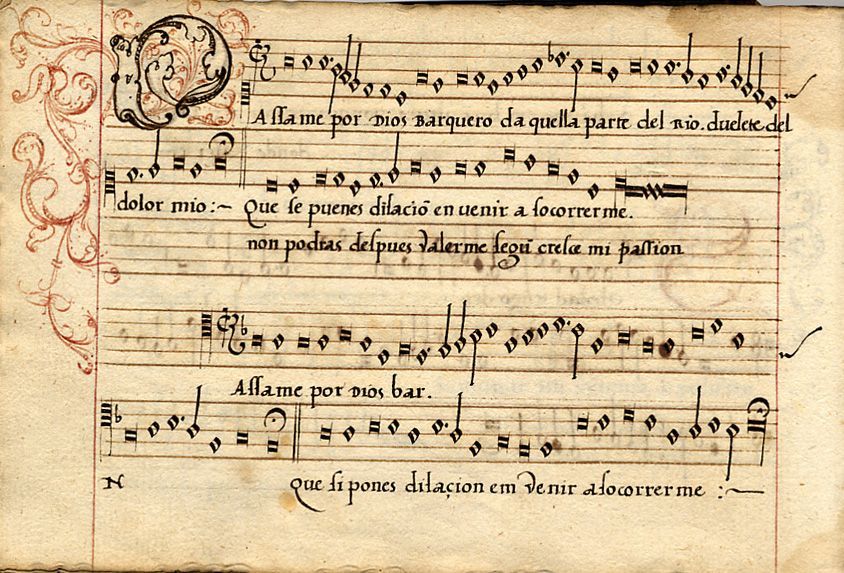 PAssame por Dios Barquero da quella parte del Rio. duelete del
dolor mio :~ Que se puenes dilaciõ en venir a socorrer me.
non podras despues valerme segũ cresce mi passion
Assame por Dios bar.
N
Que si pones dilaçion em venir a socorrer me :~